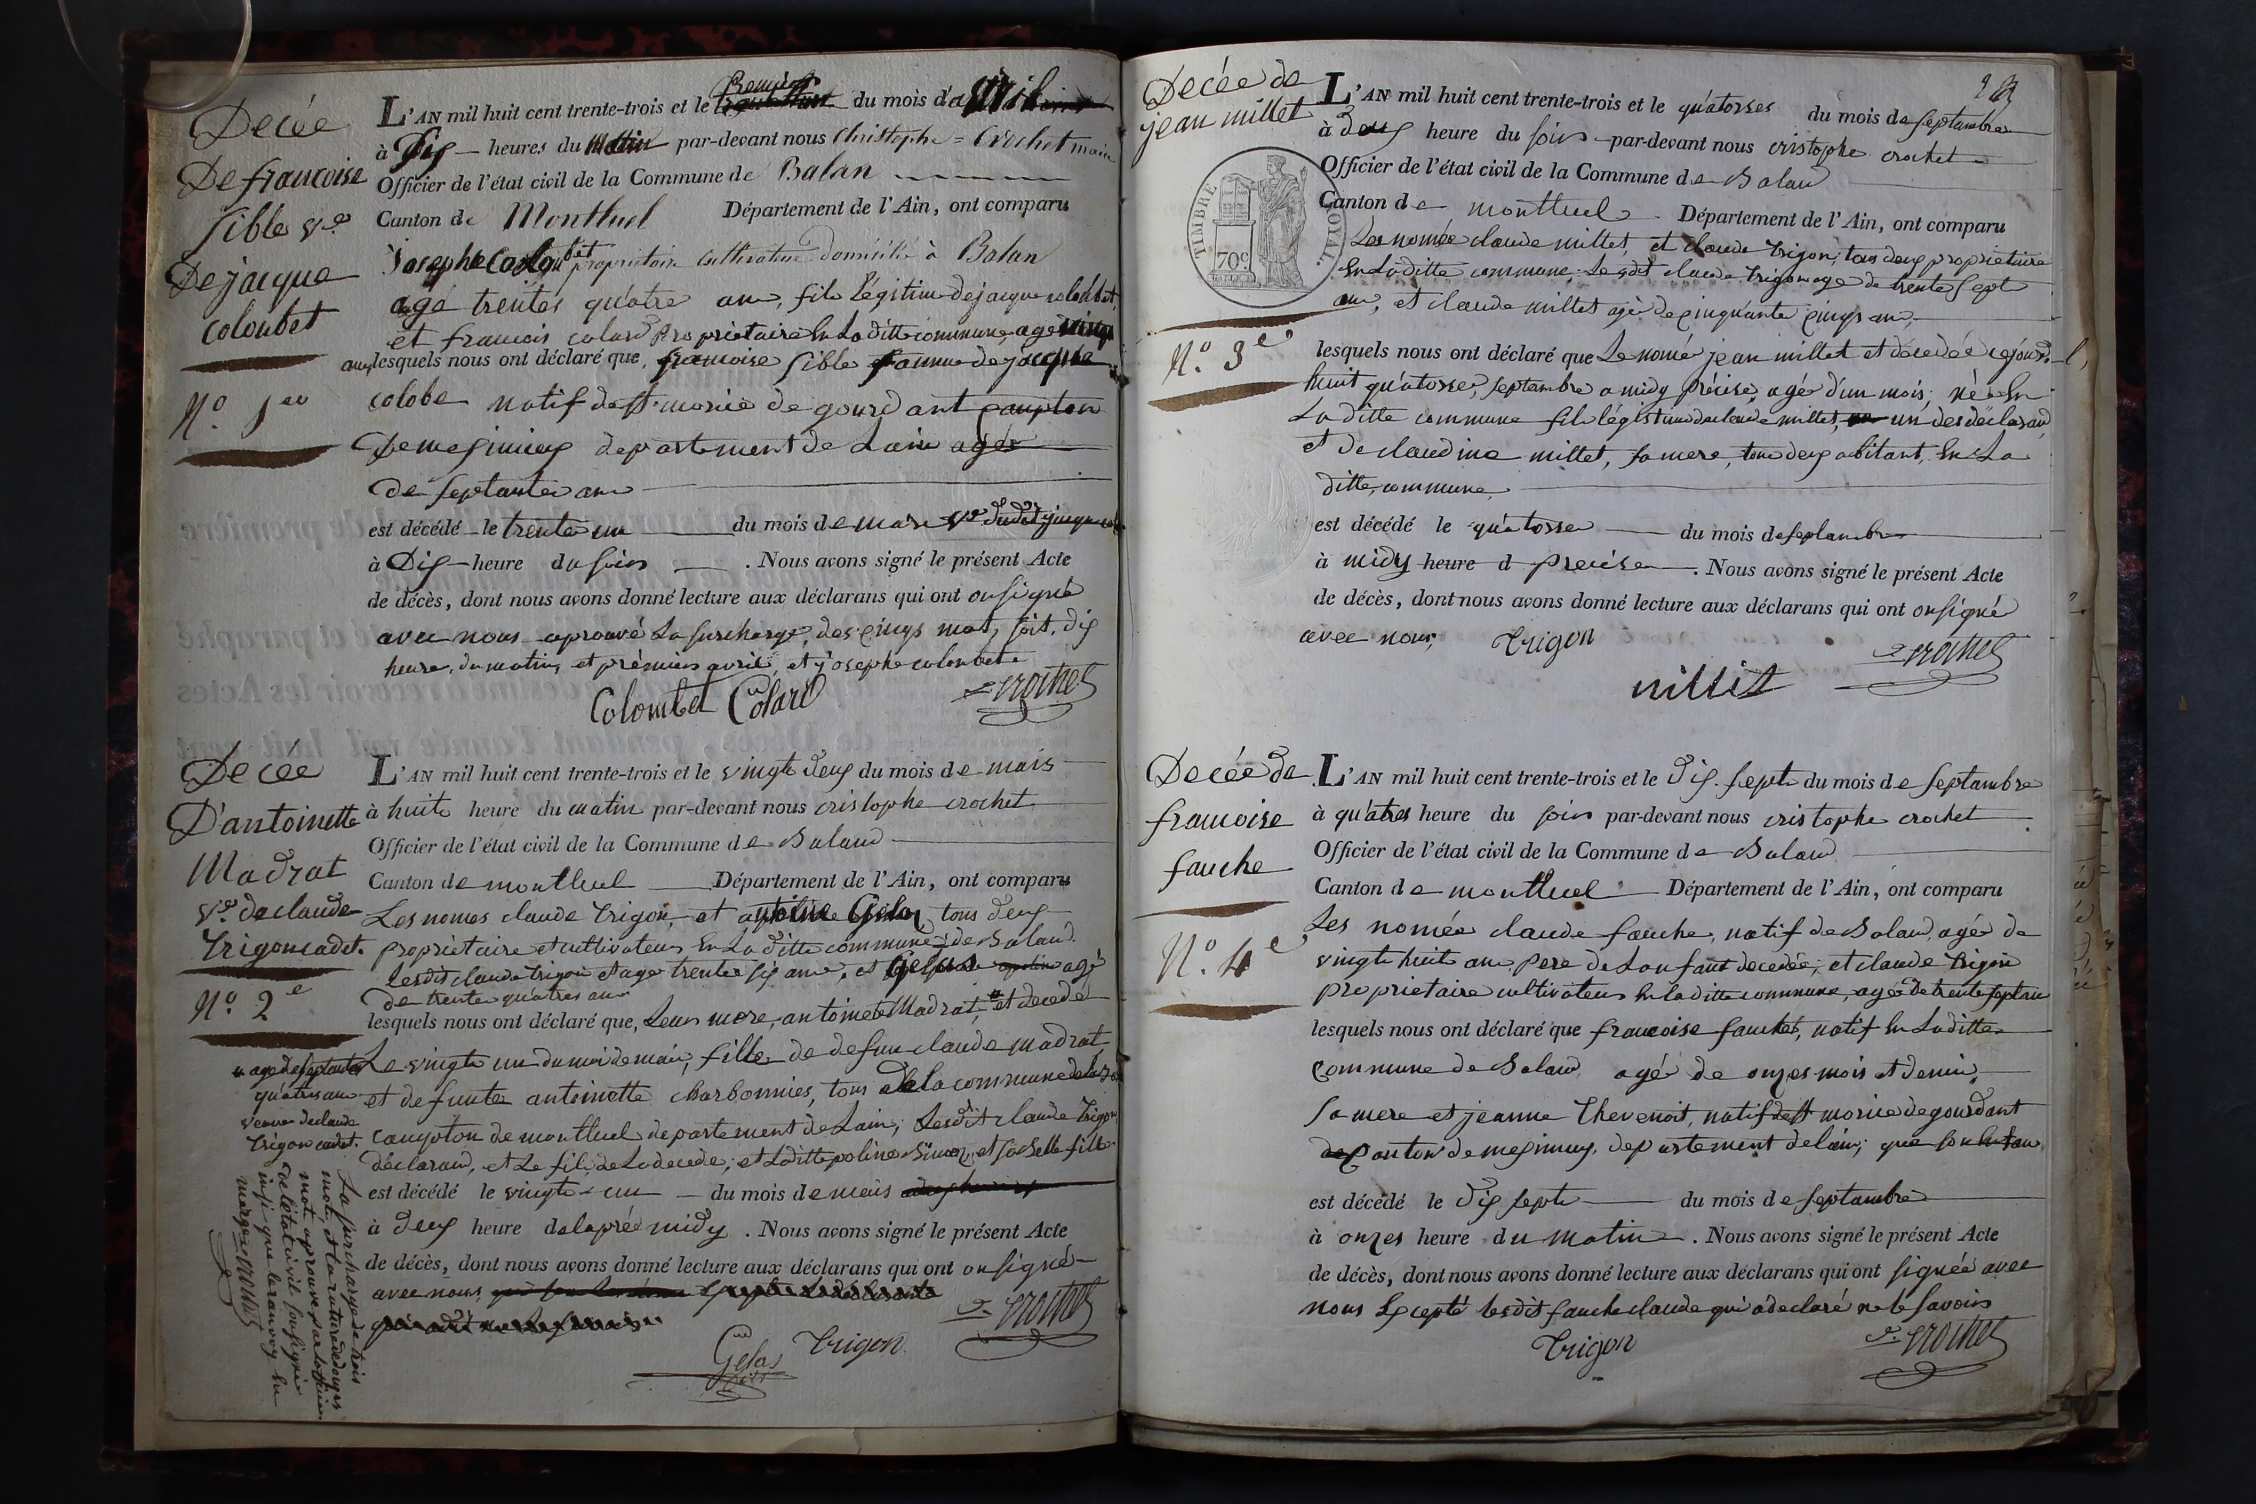 Decée
De francoise
sible Ve
De jacque
coloubet
N.o 1er
L'AN mil huit cent trente-trois et le Premier du mois d'avril
à Dix heures du Matin par-devant nous Christophe = Crochet maire
Officier de l'état civil de la Commune de Balan
Canton de Montluel Département de l'Ain, ont comparu
Josephe Coloubet proprietaire cultivateur domicilié à Balan
agé trentes quatre ans, fils légitime de jacque coloubet
et francois colard propriétaire En La ditte commune, age vingt
ans lesquels nous ont déclaré que francoise sible famme de jacque
colobe natif de st morice de gourdant canpton
De meximieux departement de Lain agée
de septante ans
est décédé le trente un du mois de mars Ve dudit jacque
à Dix heure du soir . Nous avons signé le présent Acte
de décès, dont nous avons donné lecture aux déclarans qui ont onsigné
avec nous aprouvé La surcharge, des cinqs mot, soit, dix
heure, du matin, et prémier avril, et josephe coloubet
Colombet Colard Crochet
Decée
D'antoinette
Madrat
Ve de claude
trigon cadet.
N.o 2e
L'AN mil huit cent trente-trois et le vingte deux du mois de mais
à huite heure du matin par-devant nous cristophe crochet
Officier de l'état civil de la Commune de Baland
Canton de montluel Département de l'Ain, ont comparu
Les nomes claude trigon, et tous deux
propriétaire et cultivateur En La ditte commune de Baland.
Lesdit claude trigon et age trente six ans, et Gelas agé
de trente quatres ans
lesquels nous ont déclaré que, Leur mere, antoinete Madrat, et decedé
Le vingte un du moi de mais, fille de defun claude madrat
et defunte antoinette charbonnier, tous de la commune
canpton de montluel departement de Lain, Lesdit claude trigon
déclarand, et Le fils de La decede, et La ditte et sa belle fille
est décédé le vingte un du mois de mais
à deux heure de laprée midy . Nous avons signé le présent Acte
de décès, dont nous avons donné lecture aux déclarans qui ont onsigné
avec nous
Gelas trigon Crochet
age de septantes
quatres ans
veuve de claude
trigon cadet.
La surcharge de trois
mot, et la rature de douzes
mot aprouvés par lofficier
de létat civil soussigné
insi que le ranvoy En
marge Crochet
Decée de
jean millet
TIMBRE ROYAL.
70c
N.o 3e
L'AN mil huit cent trente-trois et le quatorses du mois de septambre
à deux heure du soir par-devant nous cristophe crochet
Officier de l'état civil de la Commune de Baland
Canton de montluel Département de l'Ain, ont comparu
Les nomée claude millet, et claude trigon, tous deux propriétaire
En La ditte commune, Lesdit claude trigon age de trente sept
ans, et claude millet agé de cinquante cinqs ans,
lesquels nous ont déclaré que Le nomé jean millet et décedée cejourd.
huit quatorse, septembre a midy précise, agée d'un mois, née En
La ditte commune fils légistime de claude millet, un des déclarand
et de claudine millet, sa mere, tous deux abitant, En La
ditte commune
est décédé le quatorse du mois de septambre
à midy heure d précise . Nous avons signé le présent Acte
de décès, dont nous avons donné lecture aux déclarans qui ont onsigné
avec nous, trigon Crochet
millet
Decée de
francoise
fauche
N.o 4e
L'AN mil huit cent trente-trois et le dix. septe du mois de septambre
à quatres heure du soir par-devant nous cristophe crochet
Officier de l'état civil de la Commune de Baland
Canton de montluel Département de l'Ain, ont comparu
Les nomée claude fauche, natif de Baland, agée de
vingte huit ans, pere de Lenfant decedée, et claude trigon
proprietaire cultivateur En la ditte commune, agée de trente sept ans
lesquels nous ont déclaré que francoise fauche, natif En La ditte
commune de Baland agé de onzes mois et demi,
sa mere et jeanne thevenoit, natif de st morice de gourdant
canton de meximieux, departement de lain, que son Enfan
est décédé le dix septe du mois de septambre
à onzes heure du matin . Nous avons signé le présent Acte
de décès, dont nous avons donné lecture aux déclarans qui ont signée avec
nous Excepté lesdit fauche claude qui a declaré ne le savoir
trigon Crochet